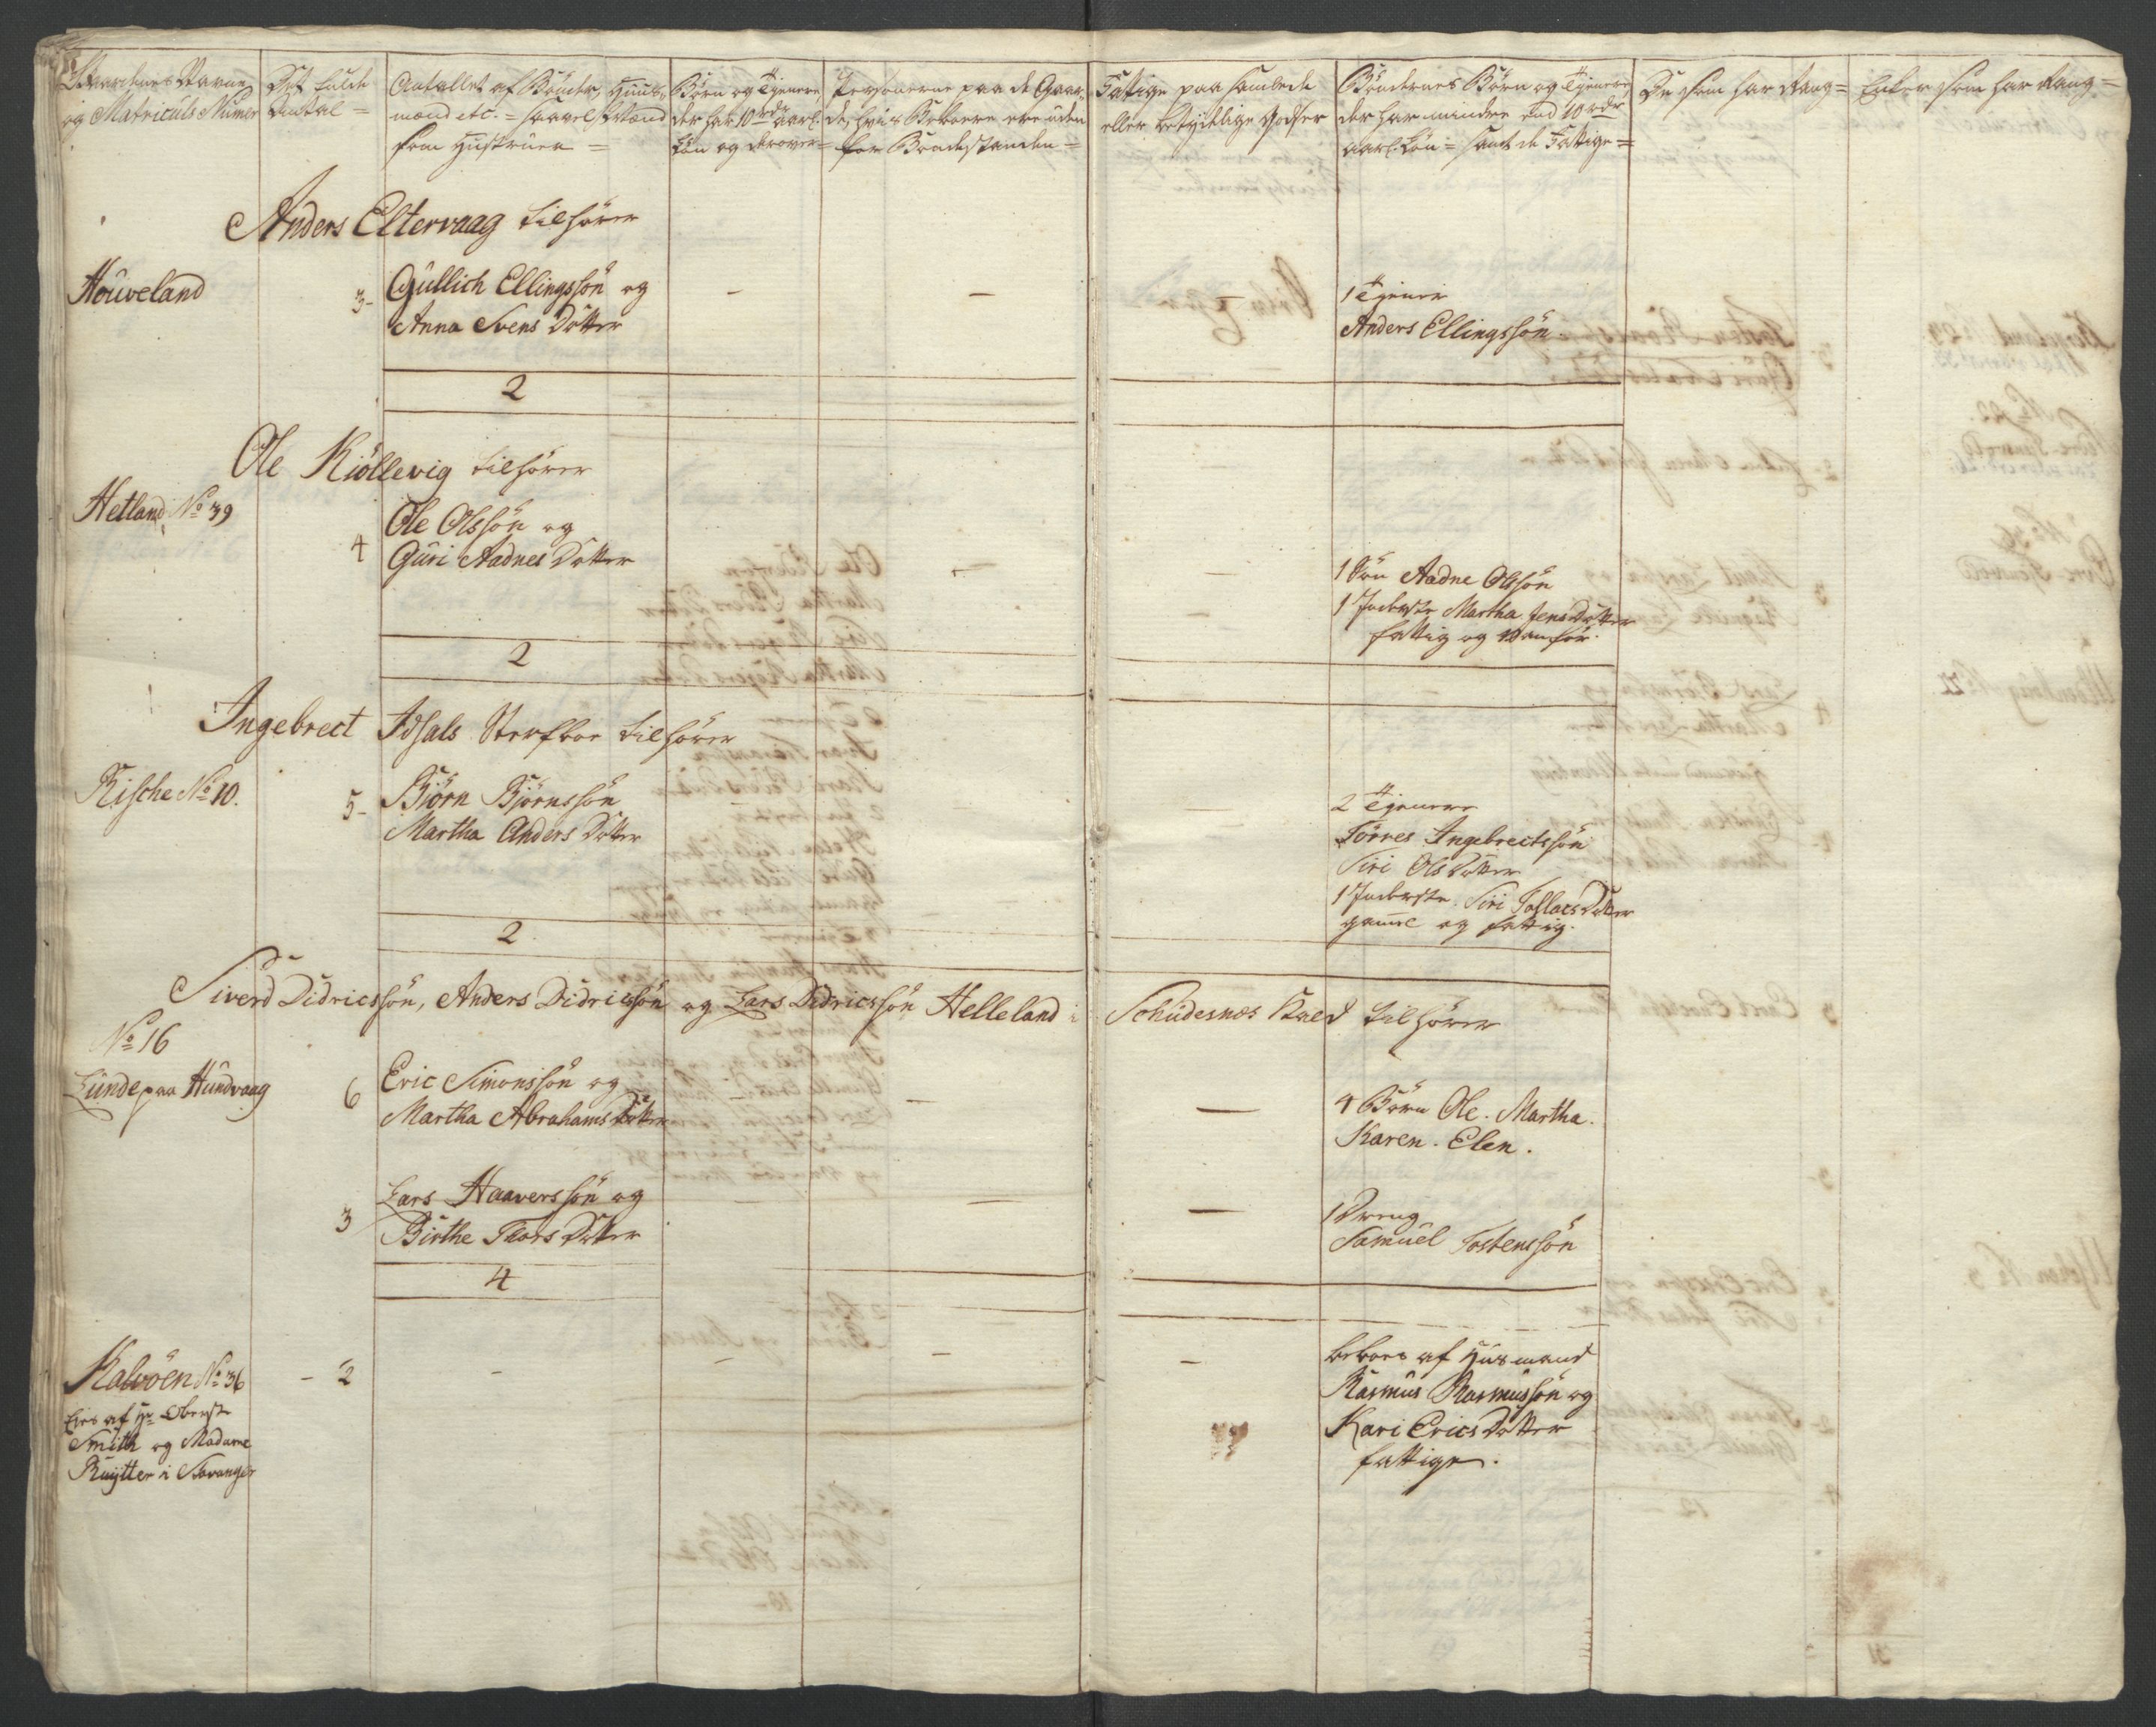 Gaardenes Navne
og Matriculs Numer
Det fulde
Antal =
Antallet af Bönder, Huus-
mænd etc. = saavel Mænd
som Hustruer =
Börn og Tienere
der har 10 rdr aarl.
Lön og derover =
Personerne paa de Gaar-
de, hvis Beboere ere uden
for Bondestanden =
Fattige paa samlede
eller betydelige Godser
Böndernes Börn og Tienere
der har mindre end 10 rdr
aarl. Lön = samt de Fattige =
De som har Rang =
Enker som har Rang =
Anders Eltervaag tilhörer
Houveland
3 -
Gullich Ellingssön og
Anna Svens Dotter
-
-
1 Tiener
Anders Ellingssön.
2
Ole Kiöllevig tilhörer
Hetland No 39
4
Ole Olssön og
Guri Aadnes Dotter
-
-
1 Sön Aadne Olssön
1 Inderste Martha Jens Dotter
fattig og vanför.
2
Ingebrect Idsals Sterfboe tilhörer
Rische No 10.
5 -
Biörn Biörnssön
Martha Anders Dotter
-
-
-
2 Tienere
Törres Ingebrectssön
Siri Ols Dotter
1 Inderste Siri Tollacs Dotter
gaml og fattig.
2
Siverd Didricssön, Anders Didricssön og Lars Didricssön Helleland i Schudesnæs Kald tilhörer
No 16
Lunde paa Hundvaag
6
Eric Simonssön og
Martha Abrahams Dotter
-
-
-
4 Börn Ole. Martha.
Karen. Elen.
3
Lars Haaverssön og
Birthe Thors Dotter
-
-
-
1 Dreng
Samuel Tostenssön
4
Kalvöen No 36
Eies af Hr Oberst
Smith og Madame
Ruytter i Stavanger
- 2
-
-
-
-
beboes af Husmand
Rasmus Rasmussön og
Kari Erics Dotter
fattige.